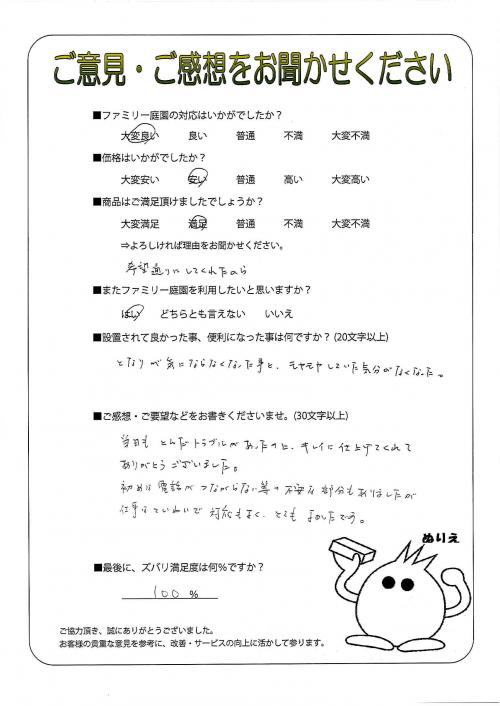 ご意見・ご感想をお聞かせください
■ファミリー庭園の対応はいかがでしたか？
大変良い 良い 普通 不満 大変不満
■価格はいかがでしたか？
大変安い 安い 普通 高い 大変高い
■商品はご満足頂けましたでしょうか？
大変満足 満足 普通 不満 大変不満
⇒よろしければ理由をお聞かせください。
希望通りにしてくれたから
■またファミリー庭園を利用したいと思いますか？
はい どちらとも言えない いいえ
■設置されて良かった事、便利になった事は何ですか？(20文字以上)
となりが気にならなくなった事と、モヤモヤしていた気分がなくなった。
■ご感想・ご要望などをお書きくださいませ。(30文字以上)
当日も とんだトラブルがあったのに、キレイに仕上げてくれて
ありがとうございました。
初めは電話がつながらない等の不安な部分もありましたが
仕事はていねいで対応もよく、とても よかったです。
ぬりえ
■最後に、ズバリ満足度は何％ですか？
100 %
ご協力頂き、誠にありがとうございました。
お客様の貴重な意見を参考に、改善・サービスの向上に活かして参ります。